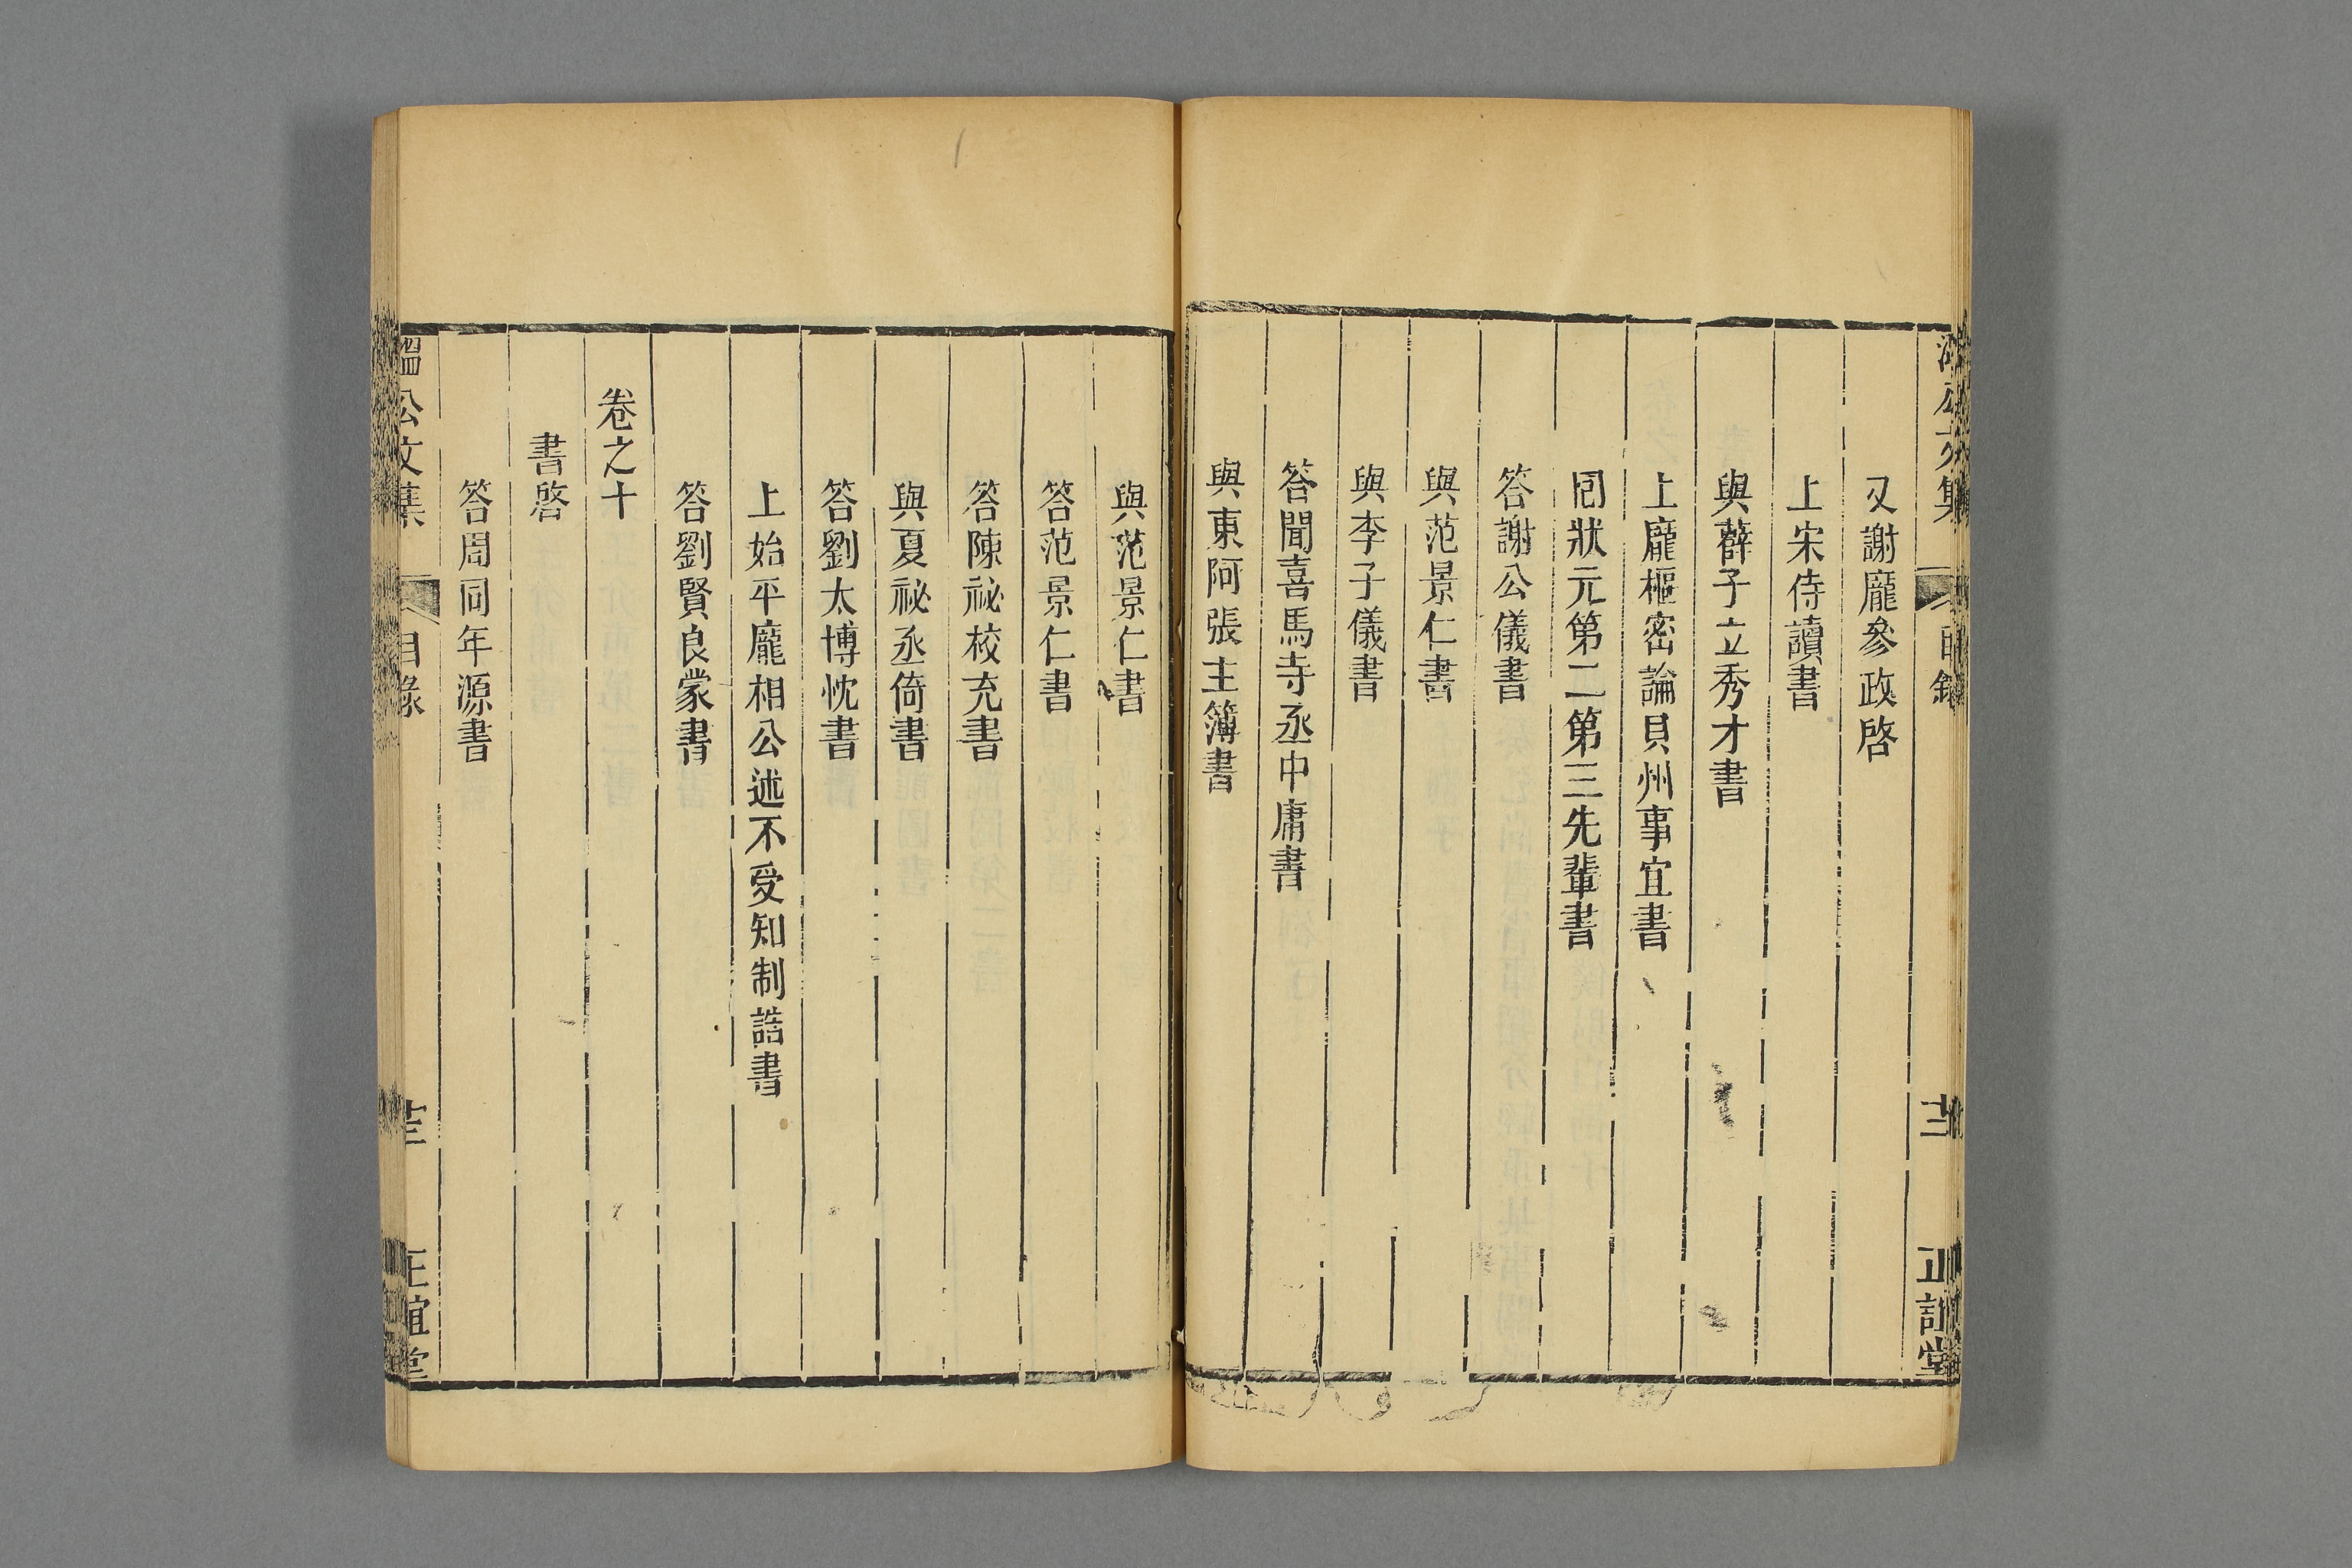 又謝龐參政啓
上宋侍讀書
與薛子立秀才書
上龐樞密論貝州事宜書
囘狀元第二第三先輩書
答謝公儀書
與范景仁書
與李子儀書
答聞喜馬寺丞中庸書
與東阿張主簿書
與范景仁書
答范景仁書
答陳祕校充書
與夏祕丞倚書
答劉太博忱書
上始平龐相公述不受知制誥書
答劉賢良蒙書
卷之十
書啓
答周同年源書
溫公文集 目錄 正誼堂